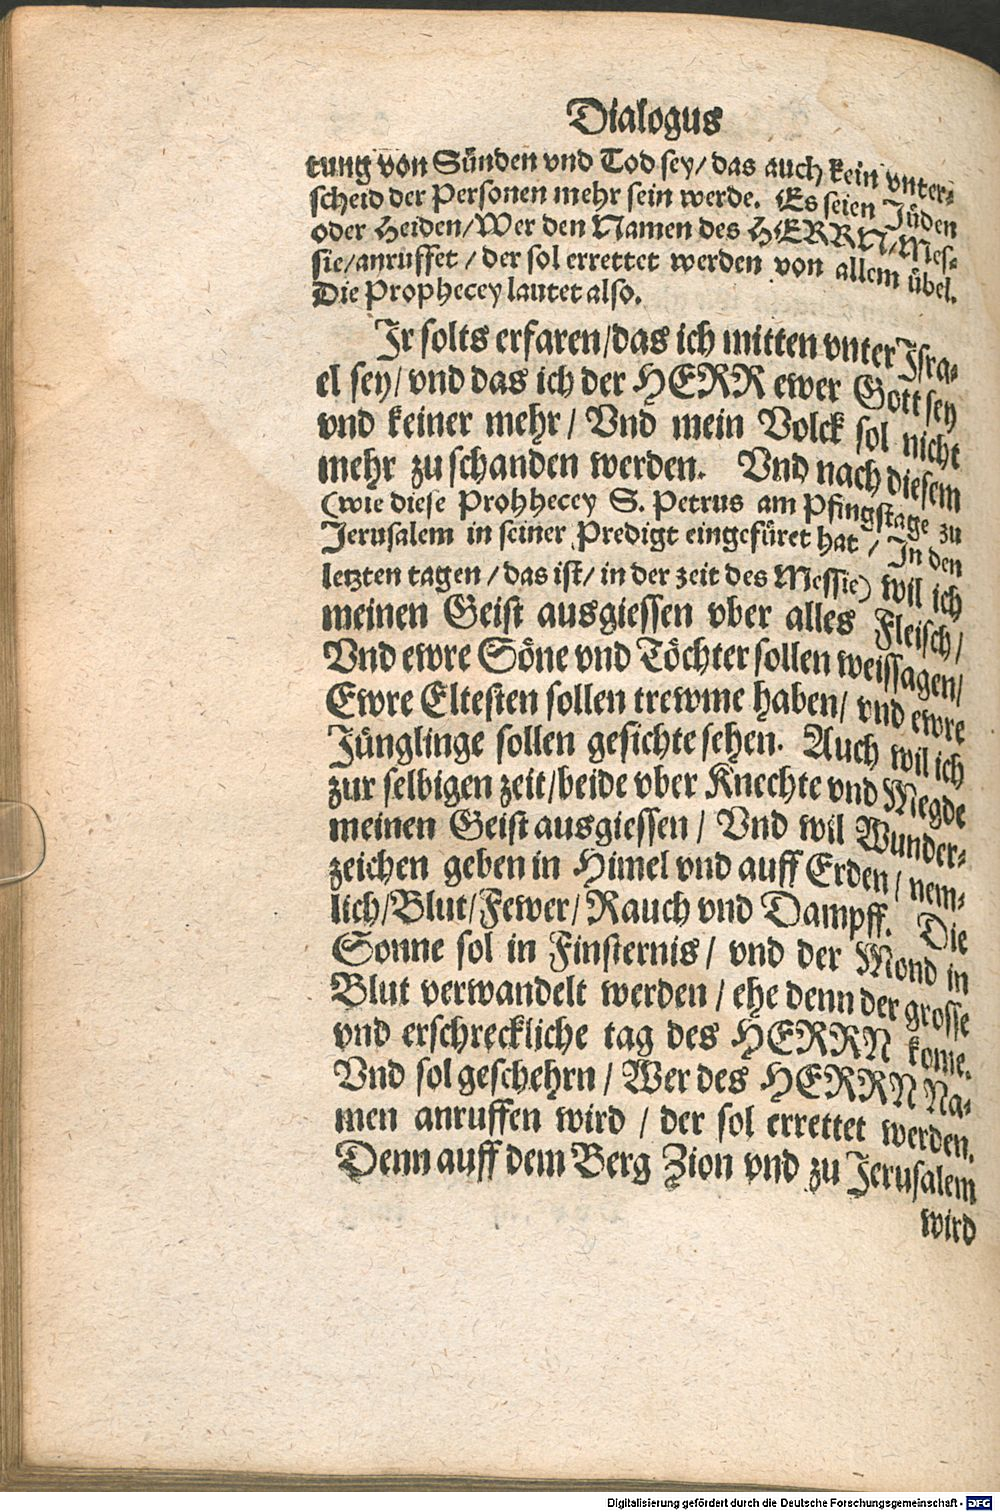 Dialogus
tung von Sünden vnd Tod sey/ das auch kein vnter-
scheid der Personen mehr sein werde. Es seien Jüden
oder Heiden/ Wer den Namen des HERRN/ Mes-
sie/ anruffet / der sol errettet werden von allem übel.
Die Prophecey lautet also.
Jr solts erfaren/ das ich mitten vnter Jsra-
el sey/ vnd das ich der HERR ewer Gott sey
vnd keiner mehr / Vnd mein Volck sol nicht
mehr zu schanden werden. Vnd nach diesem
(wie diese Prohhecey S. Petrus am Pfingstage zu
Jerusalem in seiner Predigt eingefüret hat / Jn den
letzten tagen / das ist/ in der zeit des Messie) wil ich
meinen Geist ausgiessen vber alles Fleisch/
Vnd ewre Söne vnd Töchter sollen weissagen/
Ewre Eltesten sollen trewme haben/ vnd ewre
Jünglinge sollen gesichte sehen. Auch wil ich
zur selbigen zeit/ beide vber Knechte vnd Megde
meinen Geist ausgiessen / Vnd wil Wunder-
zeichen geben in Himel vnd auff Erden / nem-
lich/ Blut/ Fewer/ Rauch vnd Dampff. Die
Sonne sol in Finsternis / vnd der Mond in
Blut verwandelt werden / ehe denn der grosse
vnd erschreckliche tag des HERRN kome.
Vnd sol geschehrn / Wer des HERRN Na-
men anruffen wird / der sol errettet werden.
Denn auff dem Berg Zion vnd zu Jerusalem
wird
Digitalisierung gefördert durch die Deutsche Forschungsgemeinschaft - DFG